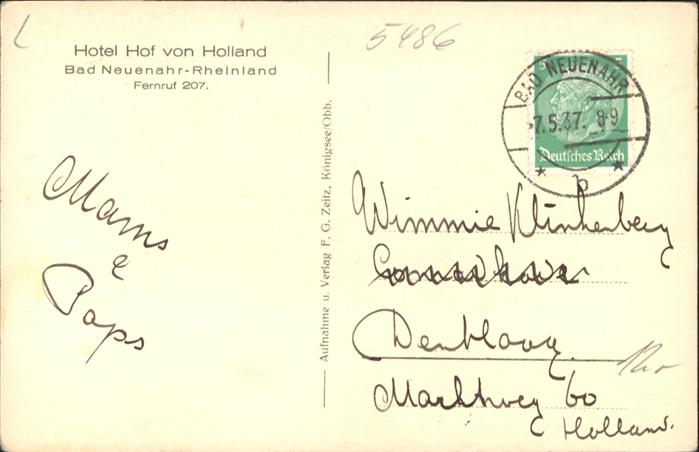 5486
Hotel Hof von Holland
Bad Neuenahr-Rheinland
Fernruf 207.
BAD NEUENAHR
-7.5.37. 8-9
* b *
Deutsches Reich
Aufnahme u. Verlag F. G. Zeitz, Königsee/Obb.
Mams
&
Paps
Wimmie Klinkenberg
Den Haag
Marktweg 60
Holland.